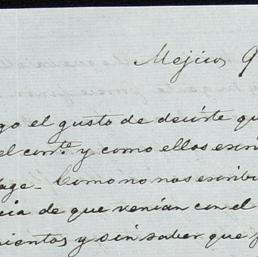 Mejico, 9
go el gusto de decirte qu
el corrte y como ellos escri
age. Como no nos escribi
cia de que venian con el
mientos y sin saber que